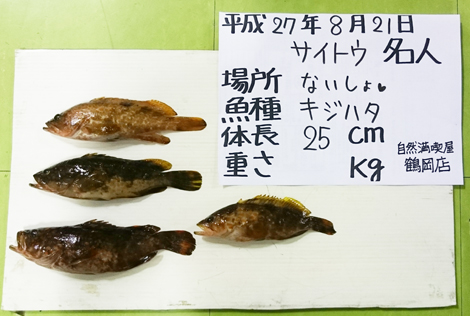 平成27年8月21日
サイトウ 名人
場所 ないしょ
魚種 キジハタ
体長 25 cm
重さ Kg
自然満喫屋
鶴岡店